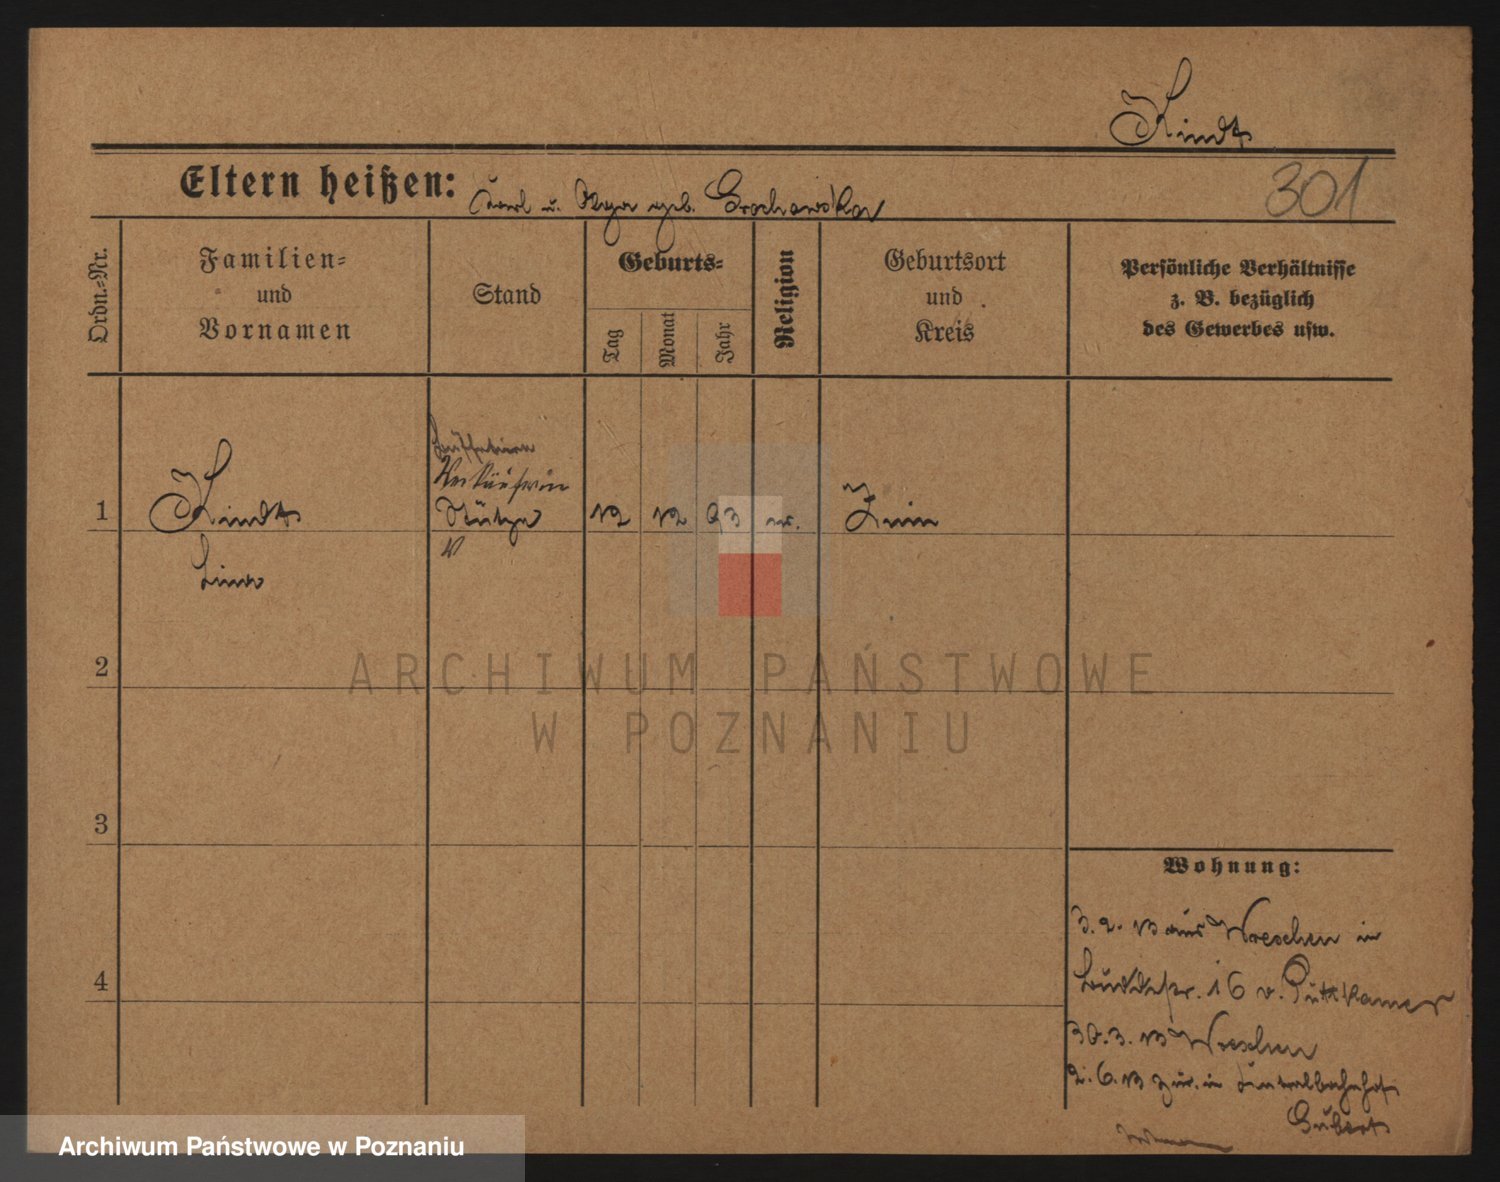 Kindt
301
Eltern heißen: Karl u. Olga geb. Grochowska
Ordn.-Nr.
Familien-
und
Vornamen
Stand
Geburts-
Tag
Monat
Jahr
Religion
Geburtsort
und
Kreis
Persönliche Verhältnisse
z. B. bezüglich
des Gewerbes usw.
Büffetiere
Verkäuferin
1 Kindt Stütze 12 12 93 ev. Znin
V
Lina
2
ARCHIWUM PAŃSTWOWE
W POZNANIU
3
Wohnung:
3. 2. 13 aus Wreschen in
4
Buddestr. 16 v. Puttkamer
30. 3. 13 Wreschen
2. 6. 13 zur. in Zentralbahnhof
Archiwum Państwowe w Poznaniu